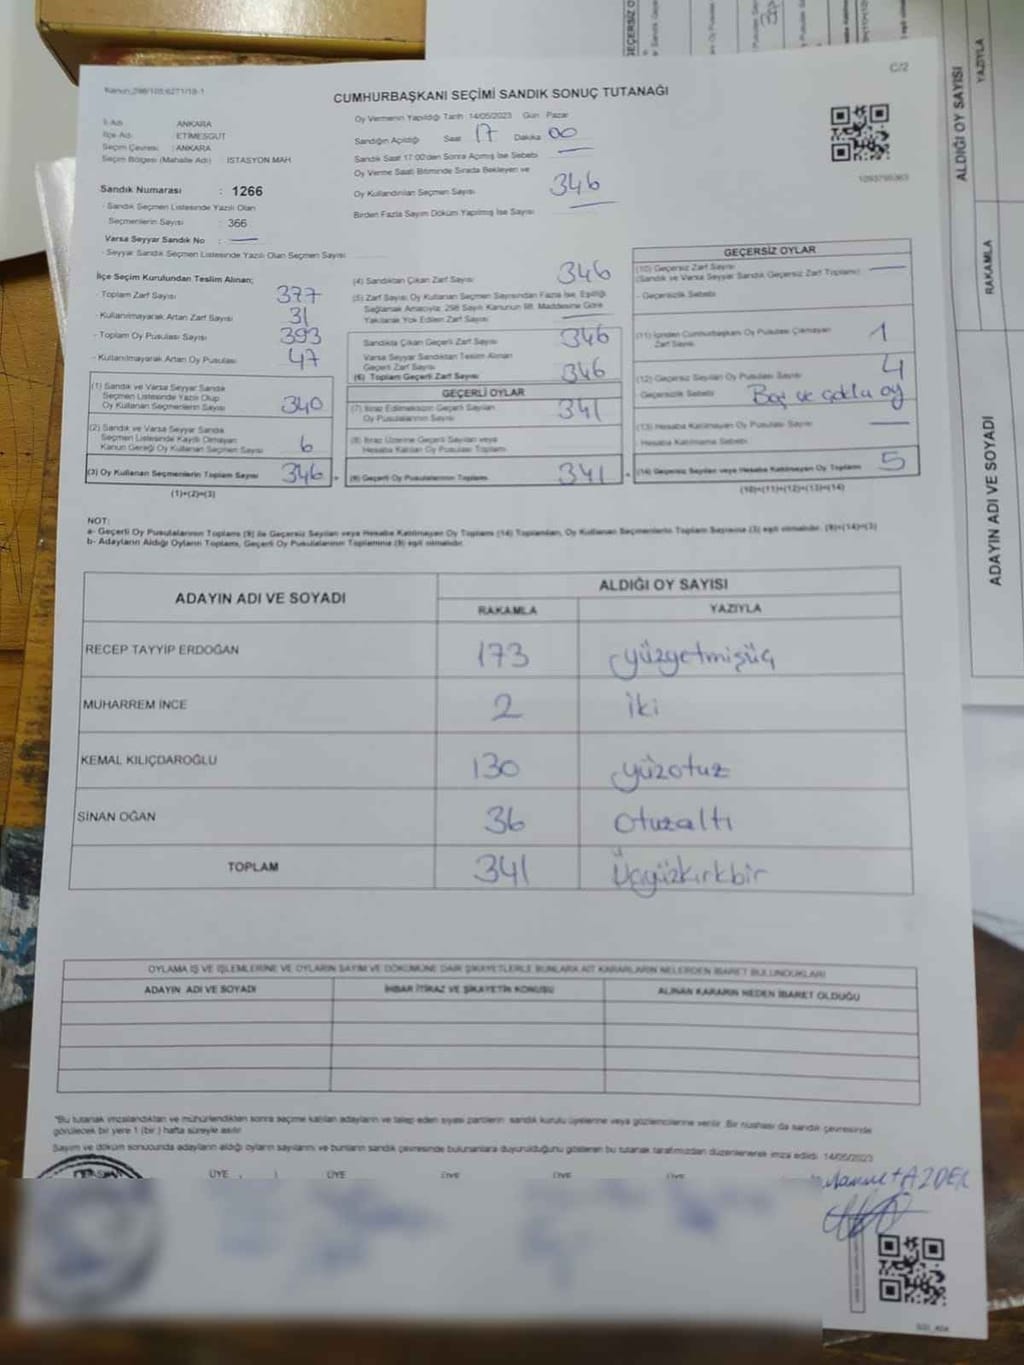 C/2
Kanun 298/105;6271/18-1
CUMHURBAŞKANI SEÇİMİ SANDIK SONUÇ TUTANAĞI
İl Adı ANKARA
İlçe Adı ETİMESGUT
Seçim Çevresi : ANKARA
Seçim Bölgesi (Mahalle Adı) İSTASYON MAH.
Sandık Numarası : 1266
- Sandık Seçmen Listesinde Yazılı Olan
Seçmenlerin Sayısı : 366
Varsa Seyyar Sandık No :
- Seyyar Sandık Seçmen Listesinde Yazılı Olan Seçmen Sayısı
Oy Vermenin Yapıldığı Tarih :14/05/2023 Gün : Pazar
Sandığın Açıldığı Saat 17 Dakika 00
Sandık Saat 17:00'den Sonra Açılmış İse Sebebi
Oy Verme Saati Bitiminde Sırada Bekleyen ve
Oy Kullandırılan Seçmen Sayısı 346
Birden Fazla Sayım Döküm Yapılmış İse Sayısı
İlçe Seçim Kurulundan Teslim Alınan;
- Toplam Zarf Sayısı 377
- Kullanılmayarak Artan Zarf Sayısı 31
- Toplam Oy Pusulası Sayısı 393
- Kullanılmayarak Artan Oy Pusulası 47
(1) Sandık ve Varsa Seyyar Sandık
Seçmen Listesinde Yazılı Olup
Oy Kullanan Seçmenlerin Sayısı 340
(2) Sandık ve Varsa Seyyar Sandık
Seçmen Listesinde Kayıtlı Olmayan
Kanun Gereği Oy Kullanan Seçmen Sayısı 6
(3) Oy Kullanan Seçmenlerin Toplam Sayısı 346
(1)+(2)=(3)
(4) Sandıktan Çıkan Zarf Sayısı 346
(5) Zarf Sayısı Oy Kullanan Seçmen Sayısından Fazla İse, Eşitliği
Sağlamak Amacıyla; 298 Sayılı Kanunun 98. Maddesine Göre
Yakılarak Yok Edilen Zarf Sayısı
Sandıkta Çıkan Geçerli Zarf Sayısı 346
Varsa Seyyar Sandıktan Teslim Alınan
Geçerli Zarf Sayısı
(6) Toplam Geçerli Zarf Sayısı 346
GEÇERLİ OYLAR
(7) İtiraz Edilmeksizin Geçerli Sayılan
Oy Pusulalarının Sayısı 341
(8) İtiraz Üzerine Geçerli Sayılan veya
Hesaba Katılan Oy Pusulaları Toplamı
(9) Geçerli Oy Pusulalarının Toplamı 341
GEÇERSİZ OYLAR
(10) Geçersiz Zarf Sayısı
(Sandık ve Varsa Seyyar Sandık Geçersiz Zarf Toplamı)
- Geçersizlik Sebebi
(11) İçinden Cumhurbaşkanı Oy Pusulası Çıkmayan
Zarf Sayısı 1
(12) Geçersiz Sayılan Oy Pusulası Sayısı 4
Geçersizlik Sebebi Boş ve çoklu oy
(13) Hesaba Katılmayan Oy Pusulası Sayısı
Hesaba Katılmama Sebebi
(14) Geçersiz Sayılan veya Hesaba Katılmayan Oy Toplamı 5
(10)+(11)+(12)+(13)=(14)
NOT:
a- Geçerli Oy Pusulalarının Toplamı (9) ile Geçersiz Sayılan veya Hesaba Katılmayan Oy Toplamı (14) Toplamları, Oy Kullanan Seçmenlerin Toplam Sayısına (3) eşit olmalıdır. (9)+(14)=(3)
b- Adayların Aldığı Oyların Toplamı, Geçerli Oy Pusulalarının Toplamına (9) eşit olmalıdır.
ADAYIN ADI VE SOYADI ALDIĞI OY SAYISI
RAKAMLA YAZIYLA
RECEP TAYYİP ERDOĞAN 173 yüzyetmişüç
MUHARREM İNCE 2 iki
KEMAL KILIÇDAROĞLU 130 yüzotuz
SİNAN OĞAN 36 otuzaltı
TOPLAM 341 Üçyüzkırkbir
OYLAMA İŞ VE İŞLEMLERİNE VE OYLARIN SAYIM VE DÖKÜMÜNE DAİR ŞİKAYETLERLE BUNLARA AİT KARARLARIN NELERDEN İBARET BULUNDUKLARI
ADAYIN ADI VE SOYADI İHBAR İTİRAZ VE ŞİKAYETİN KONUSU ALINAN KARARIN NEDEN İBARET OLDUĞU
"Bu tutanak imzalandıktan ve mühürlendikten sonra seçime katılan adayların ve talep eden siyasi partilerin sandık kurulu üyelerine veya gözlemcilerine verilir. Bir nüshası da sandık çevresinde
görülecek bir yere 1 (bir ) hafta süreyle asılır.
Sayım ve döküm sonucunda adayların aldığı oyların sayılarını ve bunların sandık çevresinde bulunanlara duyurulduğunu gösteren bu tutanak tarafımızdan düzenlenerek imza edildi. 14/05/2023
ÜYE ÜYE ÜYE ÜYE ÜYE
ALDIĞI OY SAYISI
YAZIYLA
RAKAMLA
ADAYIN ADI VE SOYADI